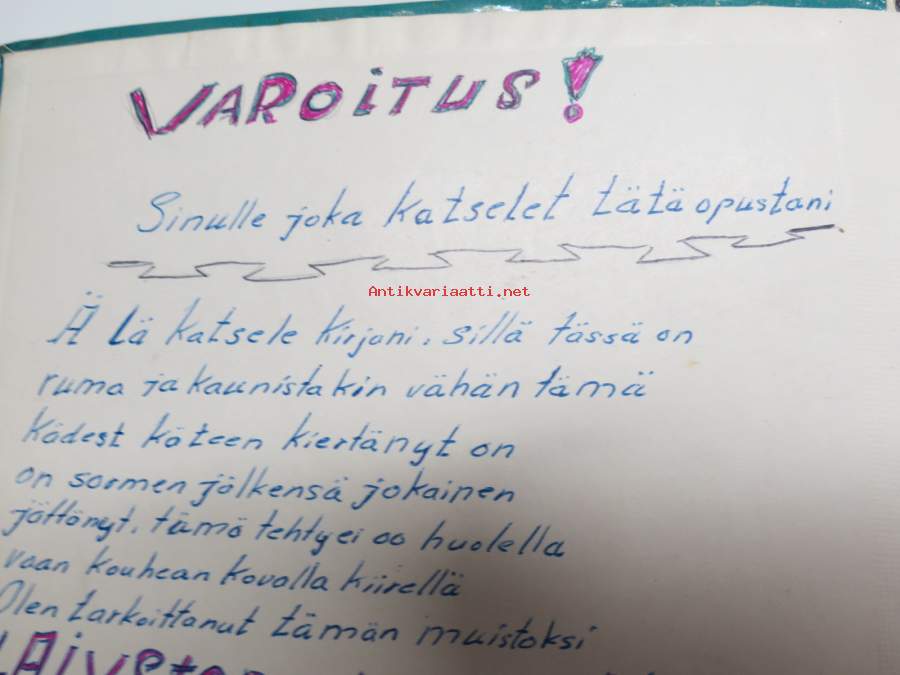 VAROITUS!
Sinulle joka katselet tätä opustani
Antikvariaatti.net
Älä katsele kirjani, sillä tässä on
ruma ja kaunistakin vähän tämä
kädest käteen kiertänyt on
on sormen jälkensä jokainen
jättänyt. tämä tehty ei oo huolella
vaan kauhean kovalla kiirellä
Olen tarkoittanut tämän muistoksi